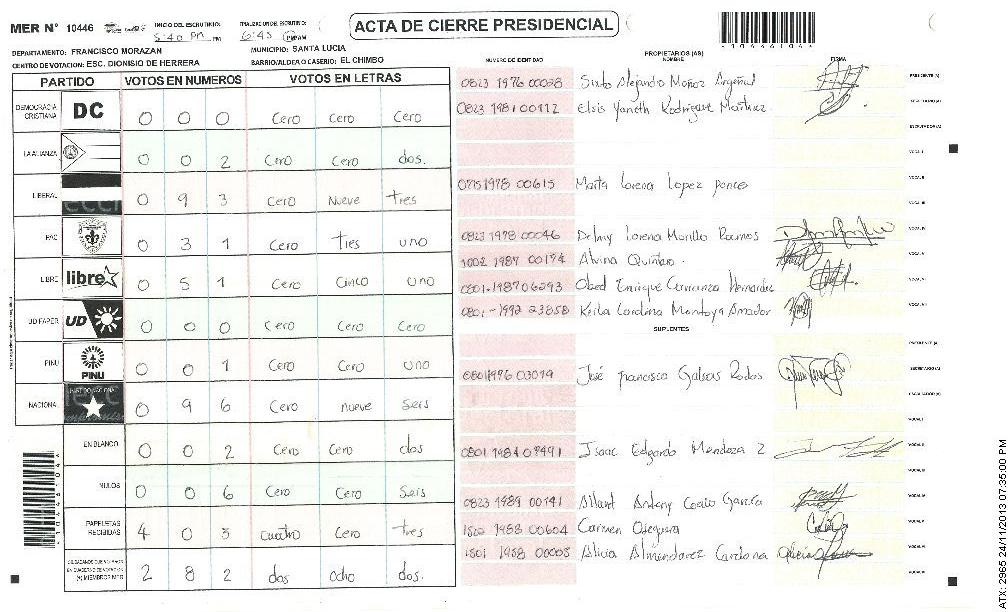 MER N° 10446
INICIO DEL ESCRUTINIO: 5:40 PM PM
FINALIZACION DEL ESCRUTINIO: 6:45 PM AM
ACTA DE CIERRE PRESIDENCIAL
1044641
DEPARTAMENTO: FRANCISCO MORAZAN
MUNICIPIO: SANTA LUCIA
CENTRO DE VOTACION: ESC. DIONISIO DE HERRERA
BARRIO/ALDEA O CASERIO: EL CHIMBO
PARTIDO VOTOS EN NUMEROS VOTOS EN LETRAS
DEMOCRACIA CRISTIANA DC 0 0 0 Cero Cero Cero
LA ALIANZA 0 0 2 Cero Cero dos.
LIBERAL 0 9 3 Cero Nueve tres
PAC 0 3 1 Cero Tres uno
LIBRE libre 0 5 1 Cero Cinco uno
UD FAPER UD 0 0 0 Cero Cero Cero
PINU PINU 0 0 1 Cero Cero uno
NACIONAL 0 9 6 Cero nueve Seis
EN BLANCO 0 0 2 Cero Cero dos
NULOS 0 0 6 Cero Cero Seis
PAPELETAS RECIBIDAS 4 0 3 cuatro Cero tres
CIUDADANOS QUE VOTARON EN CUADERNO DE VOTACION (+) MIEMBROS MER 2 8 2 dos ocho dos.
NUMERO DE IDENTIDAD
PROPIETARIOS (AS)
NOMBRE
FIRMA
0823 1976 00028 Sixto Alejandro Muñoz Argeñal PRESIDENTE (A)
0823 1981 00112 Elsis Yaneth Rodriguez Martinez SECRETARIO (A)
ESCRUTADOR (A)
VOCAL I
0715 1978 00615 Marta Lorena Lopez Ponce VOCAL II
VOCAL III
0823 1978 00046 Delmy Lorena Murillo Ramos VOCAL IV
1002 1987 00174 Alvina Quintero. VOCAL V
0801-1987 06293 Obed Enrique Carranza Hernandez VOCAL VI
0801-1992 23858 Keila Carolina Montoya Amador VOCAL VII
SUPLENTES
PRESIDENTE (A)
0801 1976 03019 José Francisco Galeas Rodas SECRETARIO (A)
ESCRUTADOR (A)
VOCAL I
0801 1984 07491 Isaac Edgardo Mendoza Z VOCAL II
VOCAL III
0823 1989 00141 Allant Antony García VOCAL IV
1502 1988 00604 Carmen Oseguera VOCAL V
1501 1958 00005 Alicia Almendarez Cardona VOCAL VI
VOCAL VII
ATX: 2965 24/11/2013 07:35:00 PM